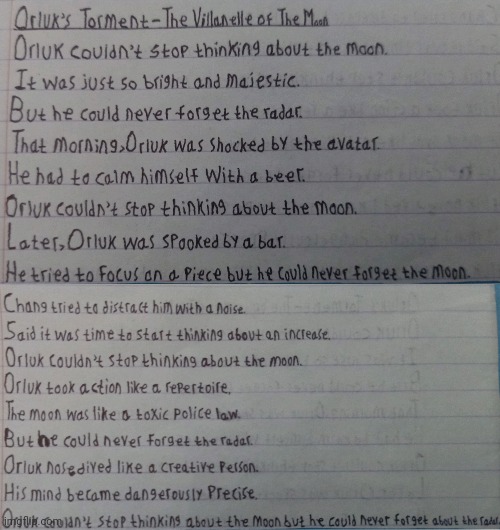 Orluk's Torment-The Villanelle of The Moon
Orluk couldn't stop thinking about the moon.
It was just so bright and majestic.
But he could never forget the radar.
That morning, Orluk was shocked by the avatar.
He had to calm himself with a beer.
Orluk couldn't stop thinking about the moon.
Later, Orluk was spooked by a bar.
He tried to focus on a piece but he could never forget the moon.
Chang tried to distract him with a noise.
Said it was time to start thinking about an increase.
Orluk couldn't stop thinking about the moon.
Orluk took action like a repertoire.
The moon was like a toxic police law.
But he could never forget the radar.
Orluk nosedived like a creative person.
His mind became dangerously precise.
Orluk couldn't stop thinking about the moon but he could never forget about the radar
imgflip.com